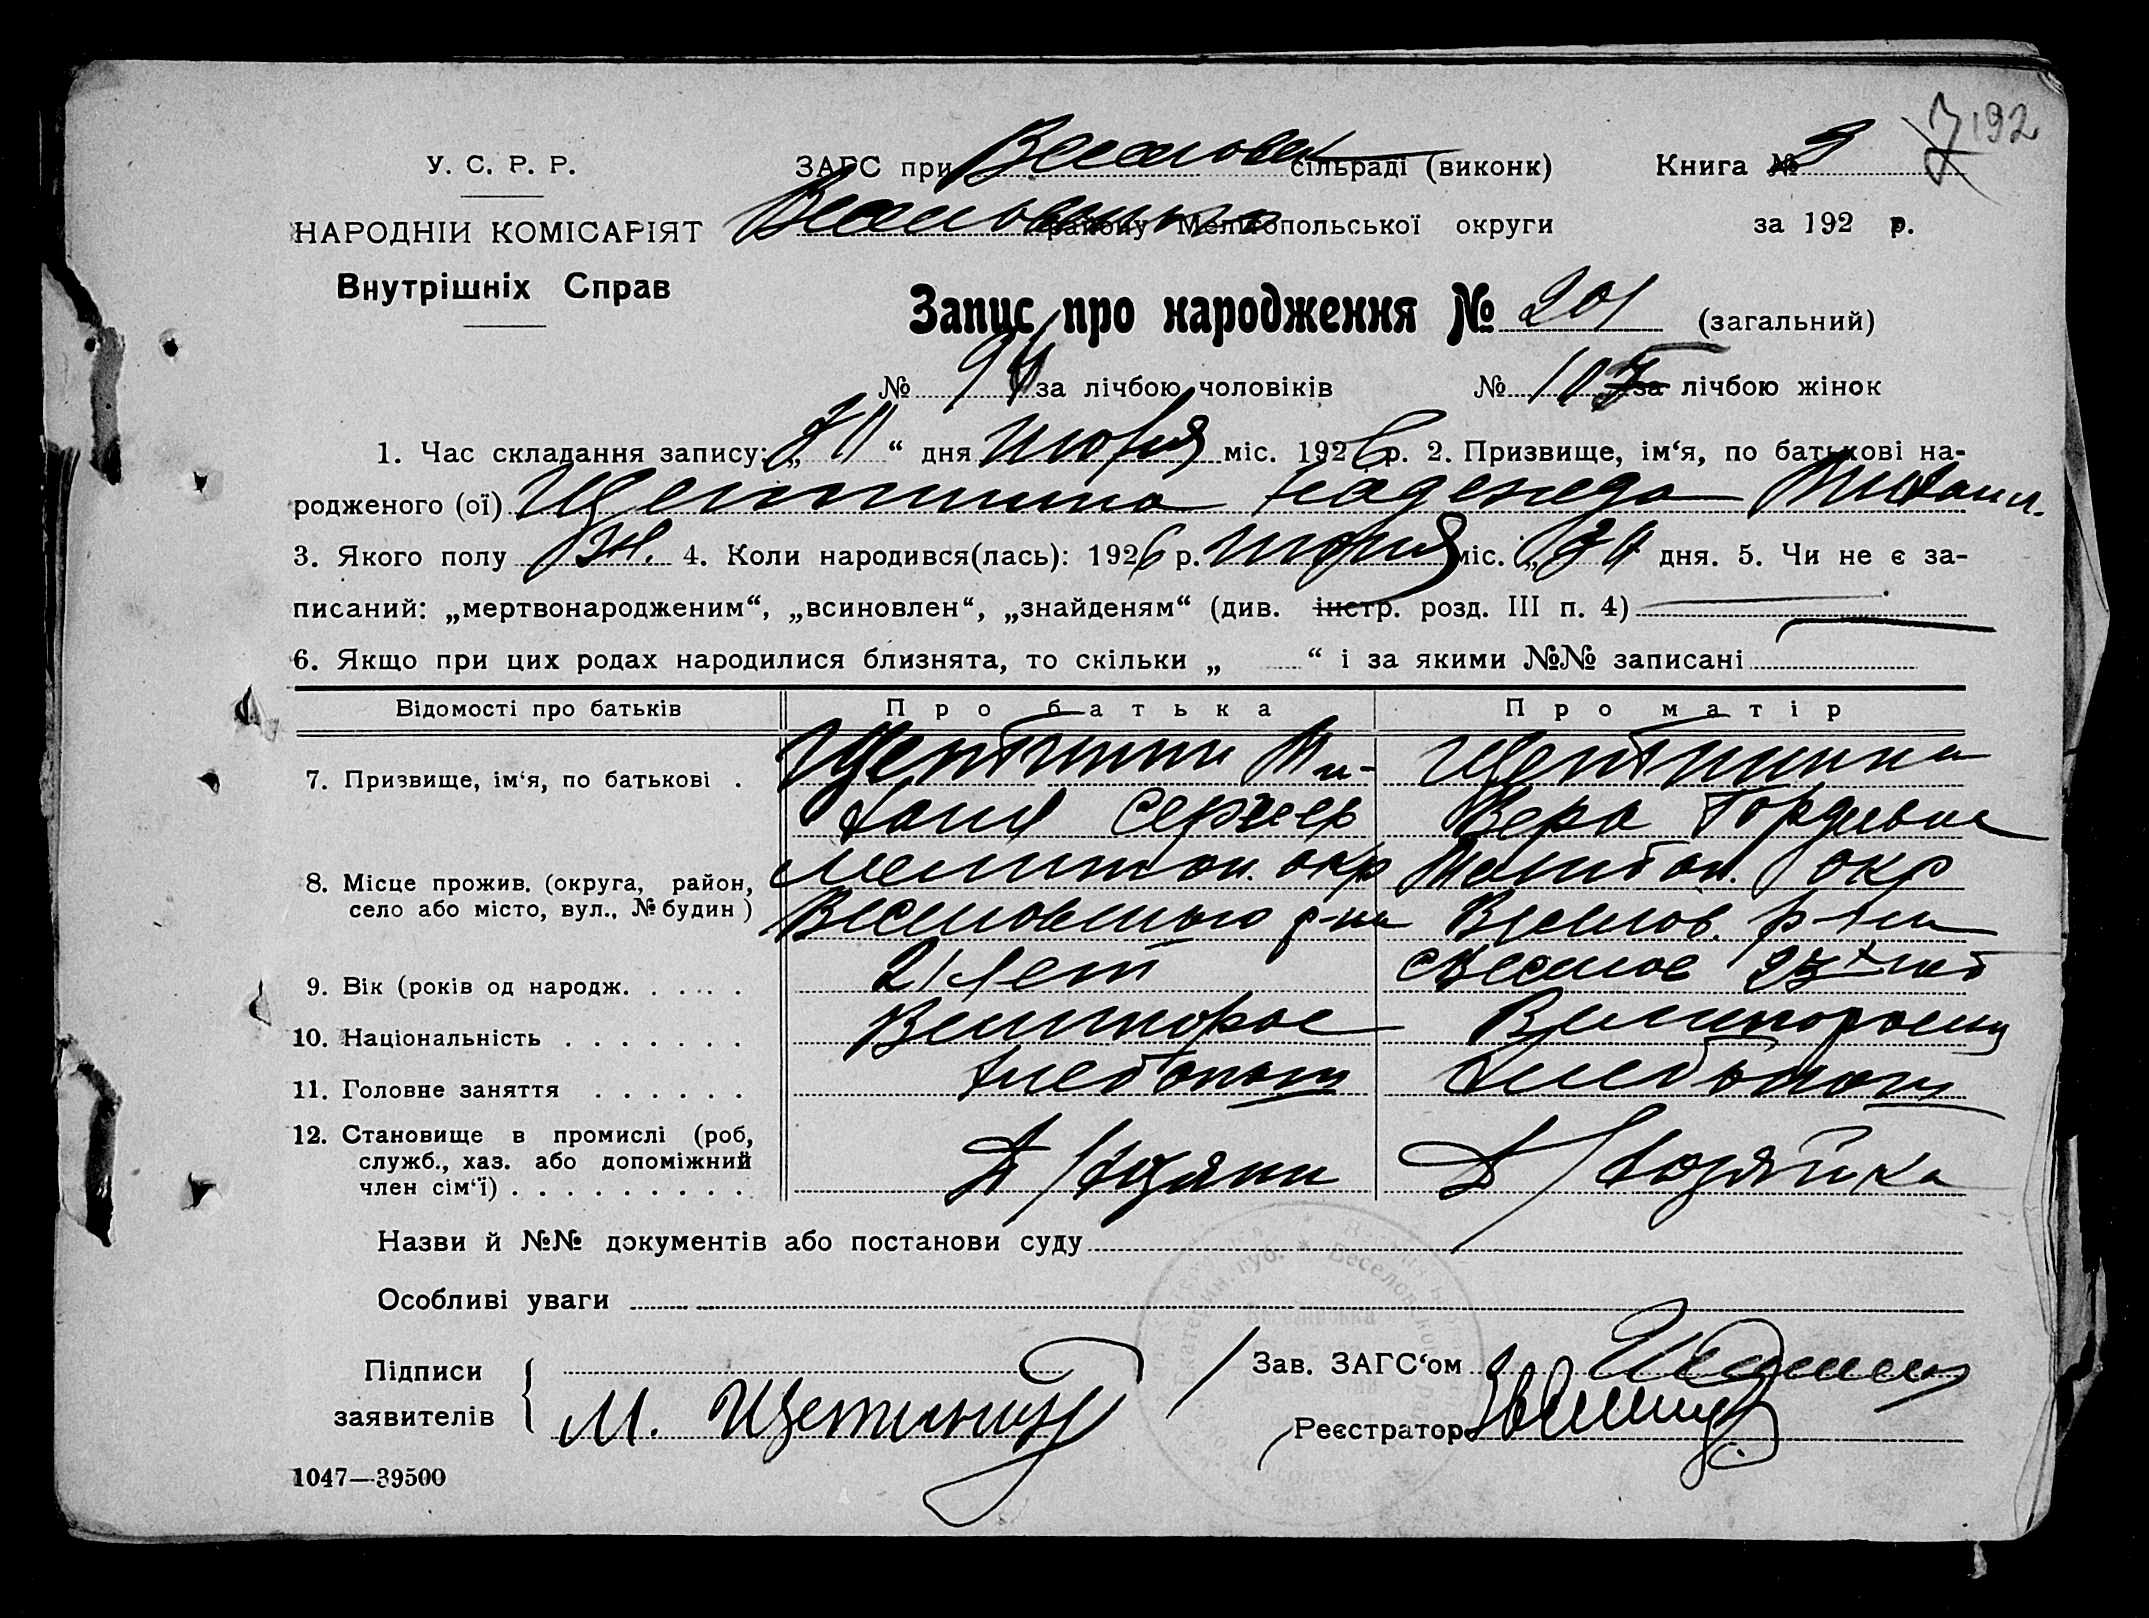 192
У. С. Р. Р.
ЗАГС при Веселовск сільраді (виконк)
Книга № 3
НАРОДНІЙ КОМІСАРІЯТ
району Мелітопольської округи
за 192 р.
Внутрішніх Справ
Запис про народження № 201 (загальний)
№ 94 за лічбою чоловіків № 107 за лічбою жінок
1. Час складання запису: „ “ дня міс. 1926 р. 2. Призвище, ім‘я, по батькові на-
родженого (ої) Щетинина Надежда Михаил.
3. Якого полу ж. 4. Коли народився(лась): 1926 р. міс. „ дня. 5. Чи не є за-
писаний: „мертвонародженим“, „всиновлен“, „знайденям“ (див. інстр. розд. III п. 4)
6. Якщо при цих родах народилися близнята, то скільки „ “ і за якими №№ записані
Відомості про батьків Про батька Про матір
7. Призвище, ім‘я, по батькові . Щетинин Ми- Щетинина
хаил Сергеев Вера Гордеевна
8. Місце прожив. (округа, район, Мелитоп. окр Мелитоп. окр
село або місто, вул., № будин) Веселовского р-на Веселов. р-на
9. Вік (років од народж. . . . . . 21 лет с Веселое лет
10. Національність . . . . . . . Великорос Великоросиян
11. Головне заняття . . . . . . хлебопаш хлебопаш
12. Становище в промислі (роб,
служб., хаз. або допоміжний
член сім‘ї) . . . . . . . . . . Д/хозяин Д/хозяйка
Назви й №№ документів або постанови суду
Особливі уваги
Підписи
заявителів
М. Щетинин
Зав. ЗАГС‘ом
Реєстратор
1047—39500